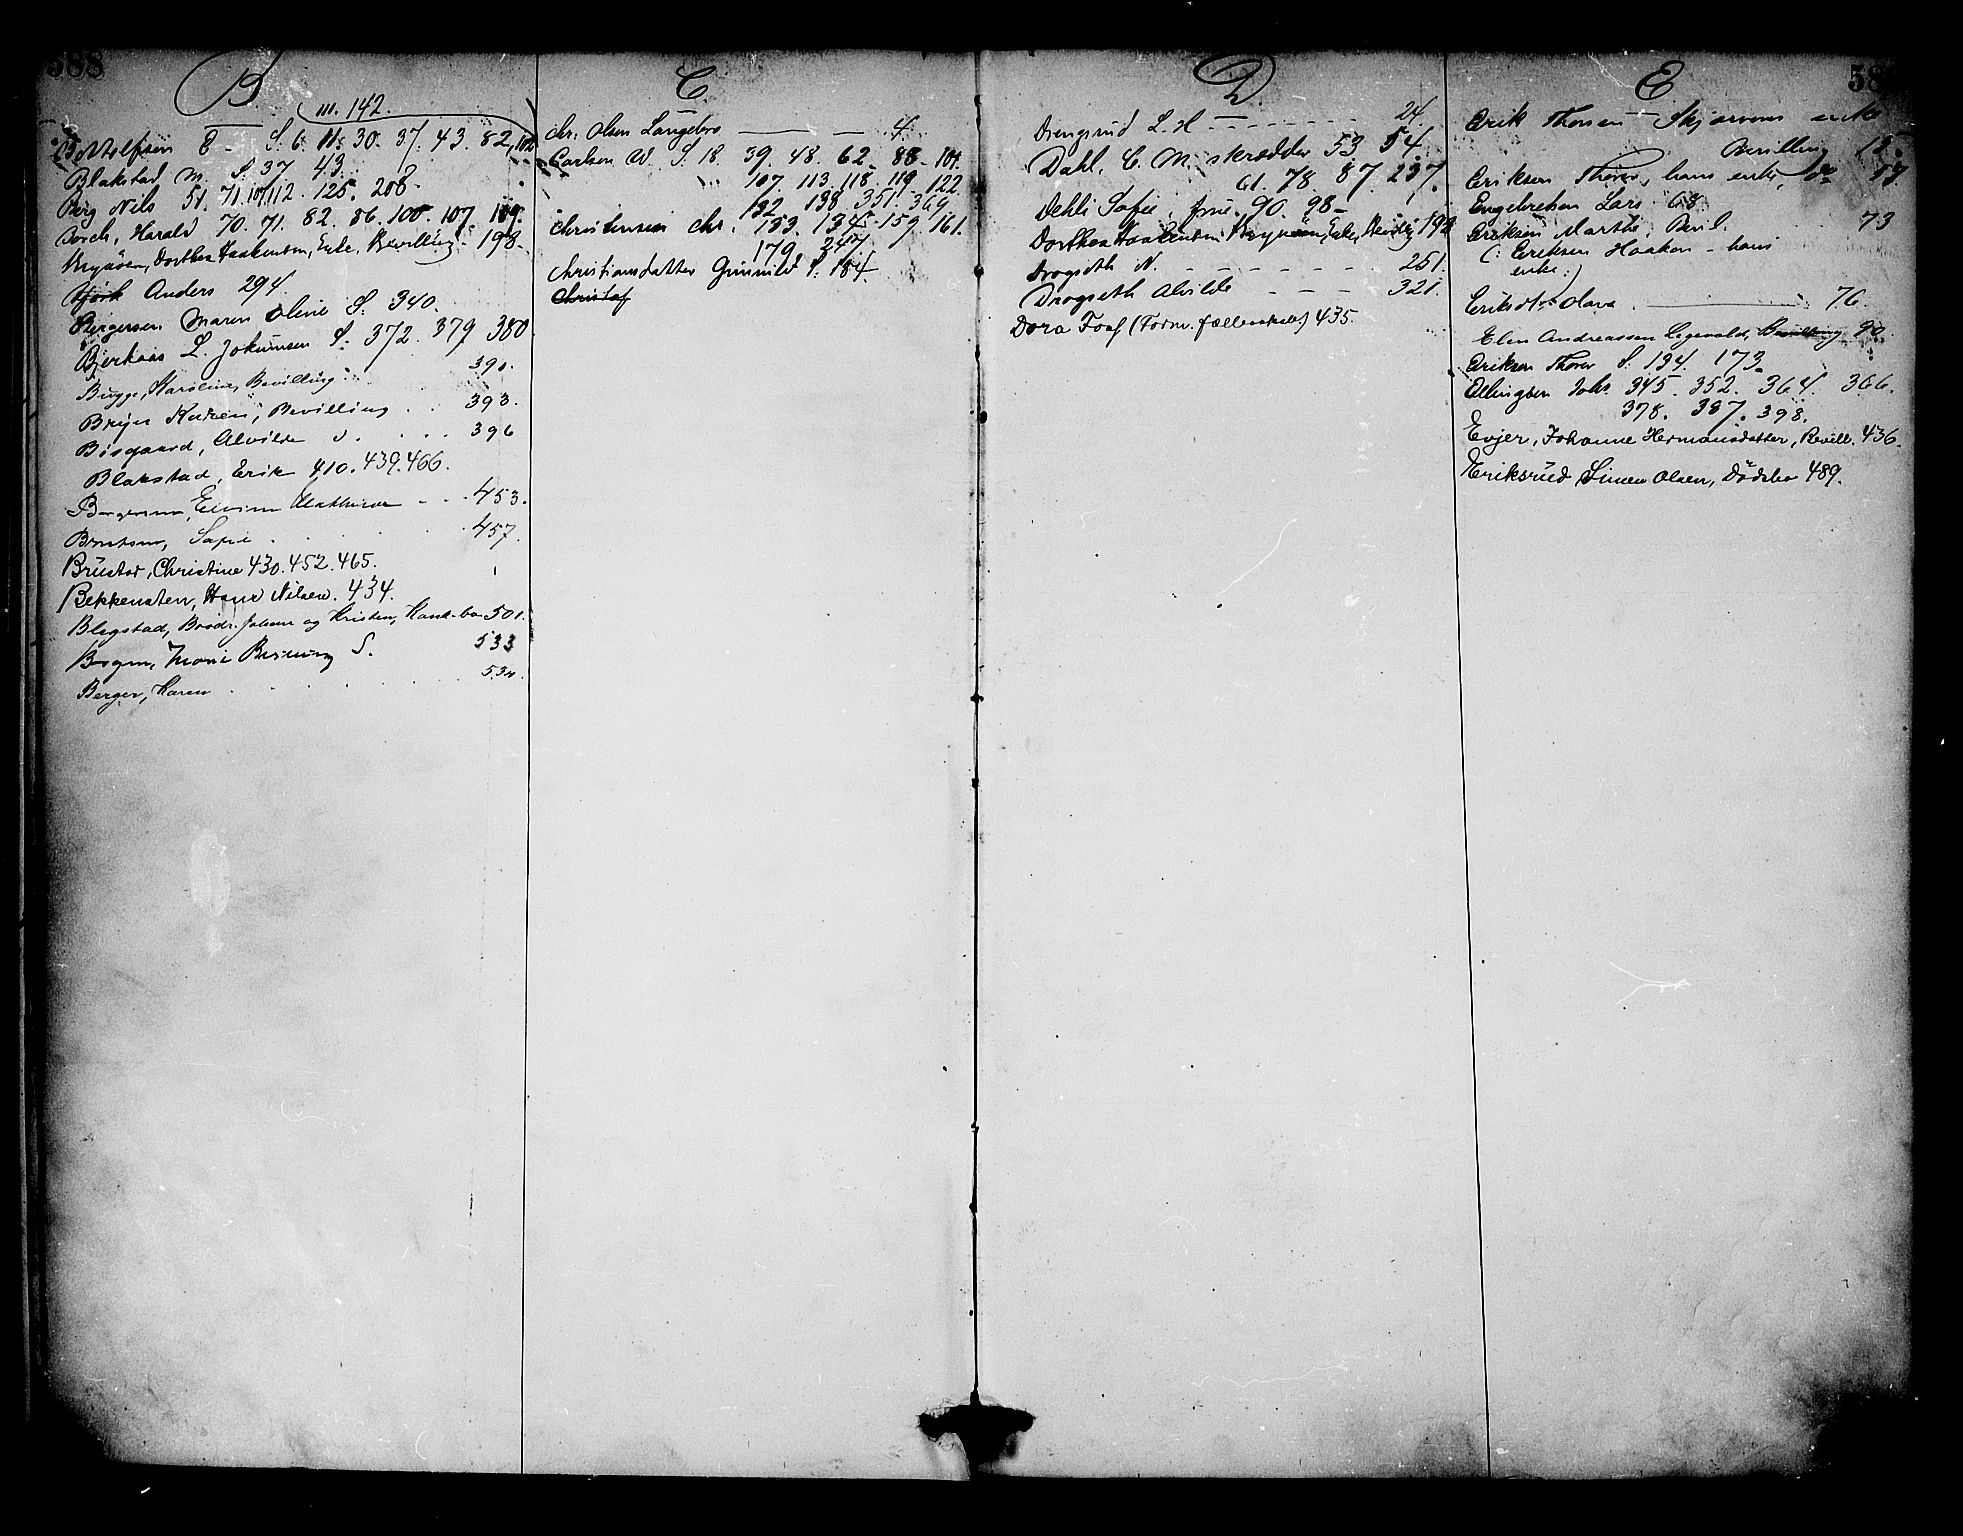 588
B
m. 142.
Bottolfsen E - S. 6. 11. 30. 37. 43. 82,
Blakstad M. S. 37 43.
Berg Nils 51. 71. 107. 112. 125. 208.
Borch, Harald 70. 71. 82. 86. 100. 107. 189.
Dorthea Haakensen, Enke, Bevilling. 198.
Bjørk Anders 294.
Børgersen Maren Oline S. 340.
Bjerkaas L. Jokumsen S. 372. 379 380.
Bugge, Karoline, Bevilling. 390.
Bryn Karen, Bevilling . . 393.
Bisgaard, Alvilde . . . . 396
Blakstad, Erik 410. 439. 466.
Børgersen, Mathiesen - - 453.
Sofie . . . . 457.
Brustad, Christine 430. 452. 465.
Bekkensten, Hans Nilsen. 434.
Blegstad, Brødr. Johan og Kristen, Konk.bo 501.
Marie S. 533
Berger, Karen . . . . 534.
C
Chr. Olsen Langebro — — 4.
Carlsen W. S. 18. 39. 48. 62. 88. 101.
107. 113. 118. 119. 122.
132. 138. 351. 369.
Christensen Chr. 133. 134. 159. 161.
179.
Christiansdatter Gunnild S. 184.
Christof
D.
Drengsrud L. H - - - - - - 24.
Dahl, C. M. skrædder 53 54.
61. 78. 87. 237.
Dehli Sofie, frue, 90. 98 -
Dorthea Haakensen Enke, Bevillig 198
Drogseth N. - - - - - - 251.
Drogseth Alvilde - - - 321.
Dora Foss (Form. fællesskab) 435.
E
Erik Thorsen Skjørvens enke
Bevilling 15.
Eriksen Thorer, hans enke, do 57.
Engebretsen Lars 68.
Eriksen Marthe, Bevil. 73
(: Eriksen Haakon - hans
enke :)
Eriksdtr Olava . — 76.
Elen Andreassen Legevold, Bevilling 90.
Eriksen Thorer S. 134. 173.
Ellingsen Johs. 345. 352. 364. 366.
378. 387. 398.
Evjer, Johanne Hermansdatter, Bevill. 436.
Eriksrud Simen Olsen, Dødsbo 489.